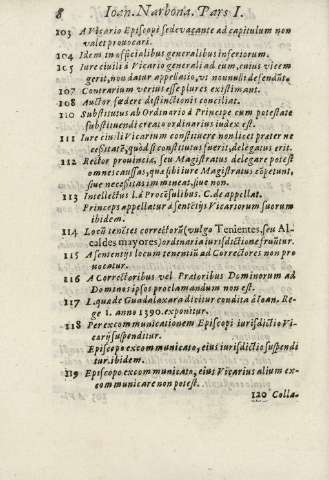 8 Ioan. Narbona. Pars I.
103 A Vicario Episcopi sede vacante ad capitulum non
valet provocari.
104 Idem in officialibus generalibus inferiorum.
105 Iure civili à Vicario generali ad eum, cuius vicem
gerit, non datur appellatio, vt nonnulli defendūt.
107 Contrarium verius esse plures existimant.
108 Auctor fœdere distinctionis conciliat.
110 Substitutus ab Ordinario à Principe cum potestate
substituendi creato ordinarius index est.
111 Iure civili Vicarium constituere non licet præter ne
cessitatē, quòd si constitutus fuerit, delegatus erit.
112 Rector provinciæ, seu Magistratus delegare potest
omnes caussas, quæ sibi iure Magistratus cōpetunt,
siue necessitas immineat, siue non.
113 Intellectus l. à Procōsulibus. C. de appellat.
Princeps appellatur à sentētijs Vicariorum suorum
ibidem.
114 Locū tenētes correctorū (vulgo Tenientes, seu Al-
caldes mayores) ordinaria iurisdictione fruūtur.
115 A sententijs locum tenentiū ad Correctores non pro
uocatur.
116 A Correctoribus vel Prætoribus Dominorum ad
Dominos ipsos proclamandum non est.
117 l. quæ de Guadalaxara dicitur condita à Ioan. Re-
ge 1. anno 1390. exponitur.
118 Per excommunicationem Episcopi iurisdictio Vi-
carij suspenditur.
Episcopo excommunicato, eius iurisdictio suspendi
tur. ibidem.
119 Episcopo excommunicato, eius Vicarius alium ex-
communicare non potest.
120 Colla-